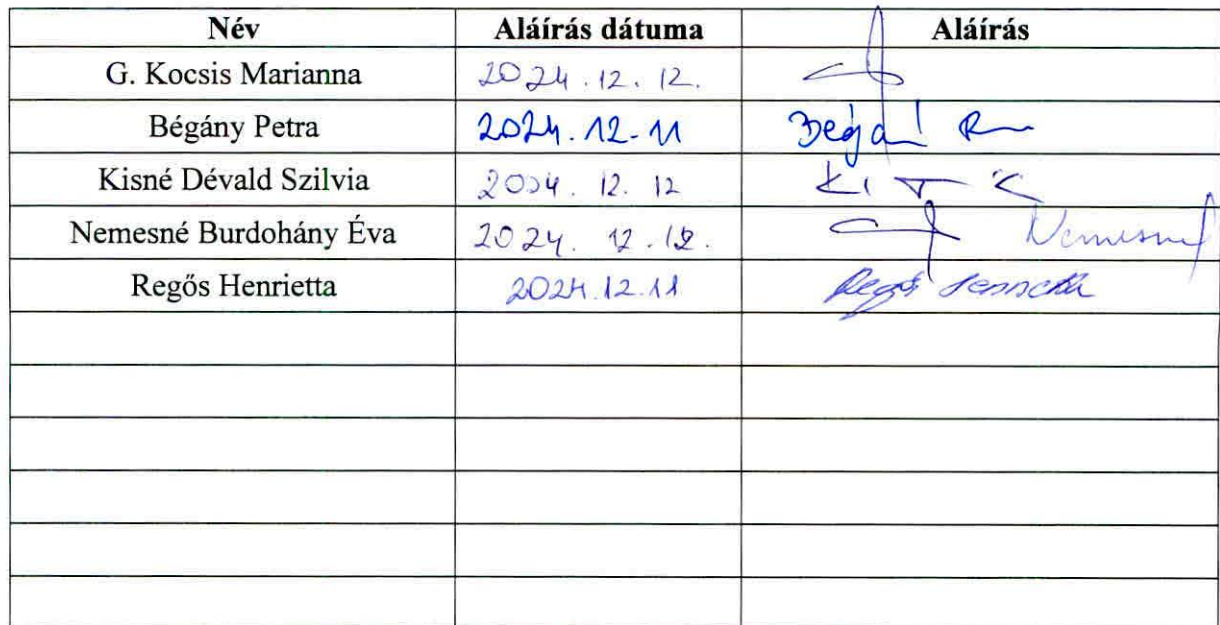 Név Aláírás dátuma Aláírás
G. Kocsis Marianna 2024.12.12.
Bégány Petra 2024.12-11
Kisné Dévald Szilvia 2024.12.12
Nemesné Burdohány Éva 2024.12.12. Nemesné
Regős Henrietta 2024.12.11 Regős Henrietta